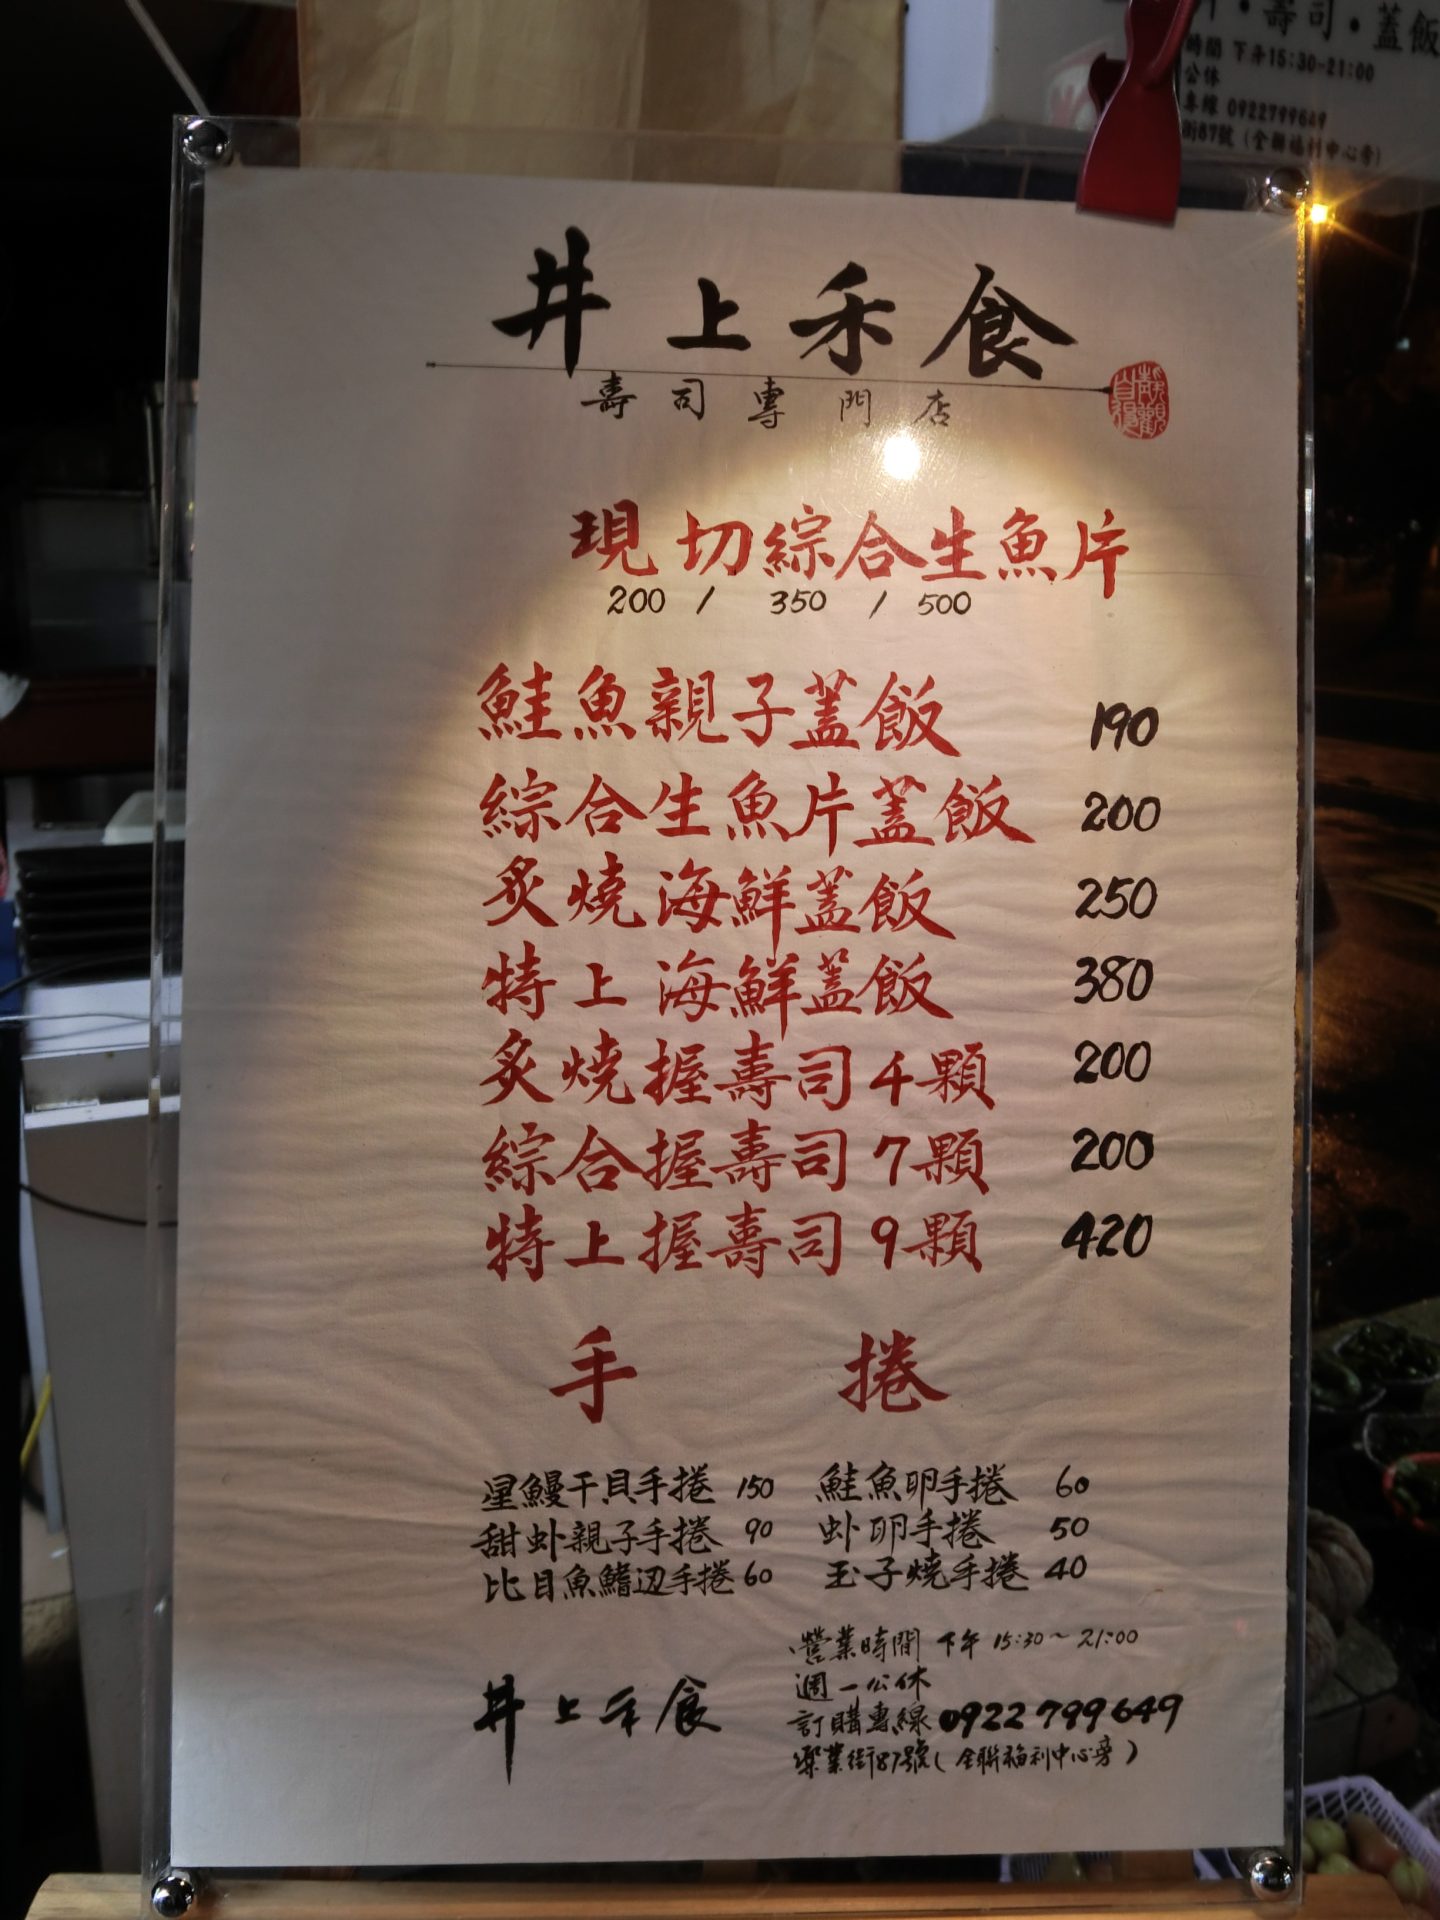 ・壽司・蓋飯
時間 下午15:30-21:00
公休
專線 0922799649
街87號 (全聯福利中心旁)
井上禾食
壽司專門店
現切綜合生魚片
200 / 350 / 500
鮭魚親子蓋飯 190
綜合生魚片蓋飯 200
炙燒海鮮蓋飯 250
特上海鮮蓋飯 380
炙燒握壽司4顆 200
綜合握壽司7顆 200
特上握壽司9顆 420
手捲
星鰻干貝手捲 150 鮭魚卵手捲 60
甜虾親子手捲 90 虾卵手捲 50
比目魚鰭辺手捲 60 玉子燒手捲 40
營業時間 下午 15:30~21:00
週一公休
訂購專線 0922799649
樂業街87號(全聯福利中心旁)
井上禾食